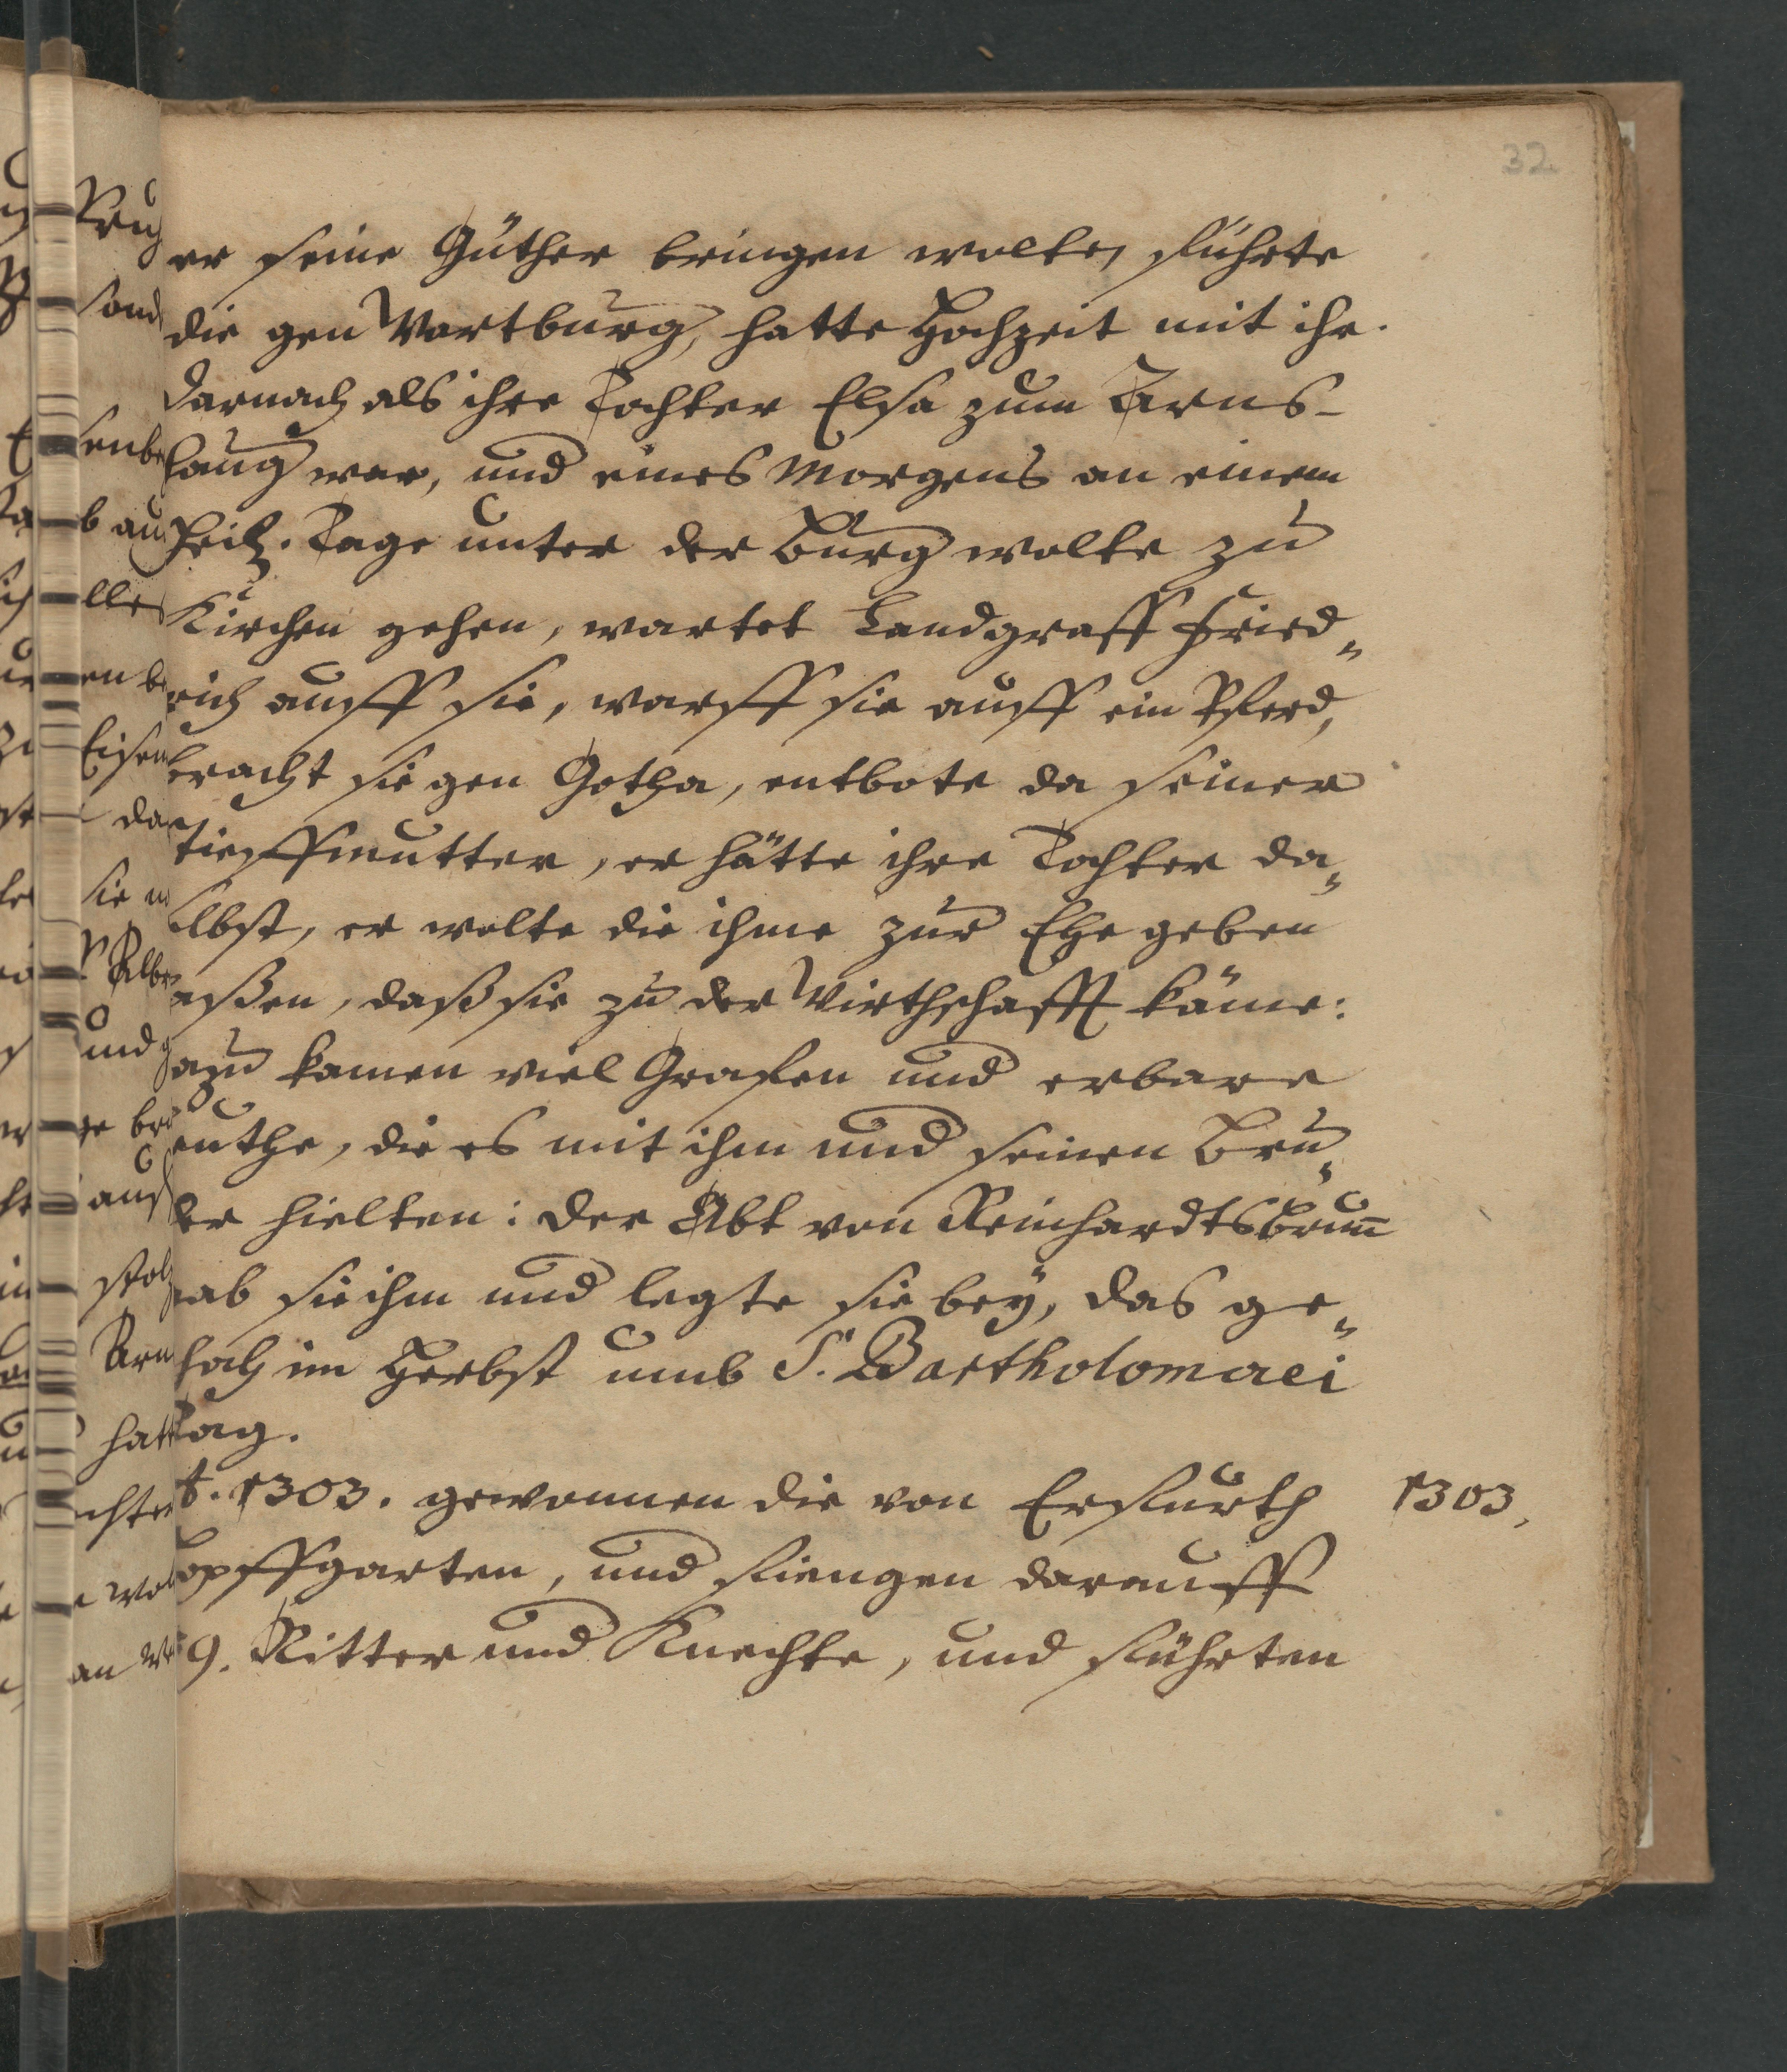 32.
er seine Güther bringen wolte, führte
die gen Wartburg, hatte Hochzeit mit ihr.
Darnach als ihre Tochter Elsa zum Arns-
haug war, und eines Morgens an einem
heil. Tage unter der Burg wolte zu
Kirchen gehen, wartet Landgraff Fried„
rich auff sie, warff sie auff ein Pferd,
bracht sie gen Gotha, entbote da seiner
tieffmutter, er hätte ihre Tochter da„
selbst, er wolte die ihme zur Ehe geben
laßen, daß sie zu der Wirthschafft käme:
azu kamen viel Grafen und erbare
euthe, die es mit ihm und seinen Bru„
der hielten: der Abt von Reinhardtsbrun̄
gab sie ihm und legte sie bey, das ge„
schah im Herbst umb S. Bartholomaei
Tag.
1303. gewonnen die von Erffurth
1303.
opffgarten, und fiengen darauff
9. Ritter und Knechte, und führten